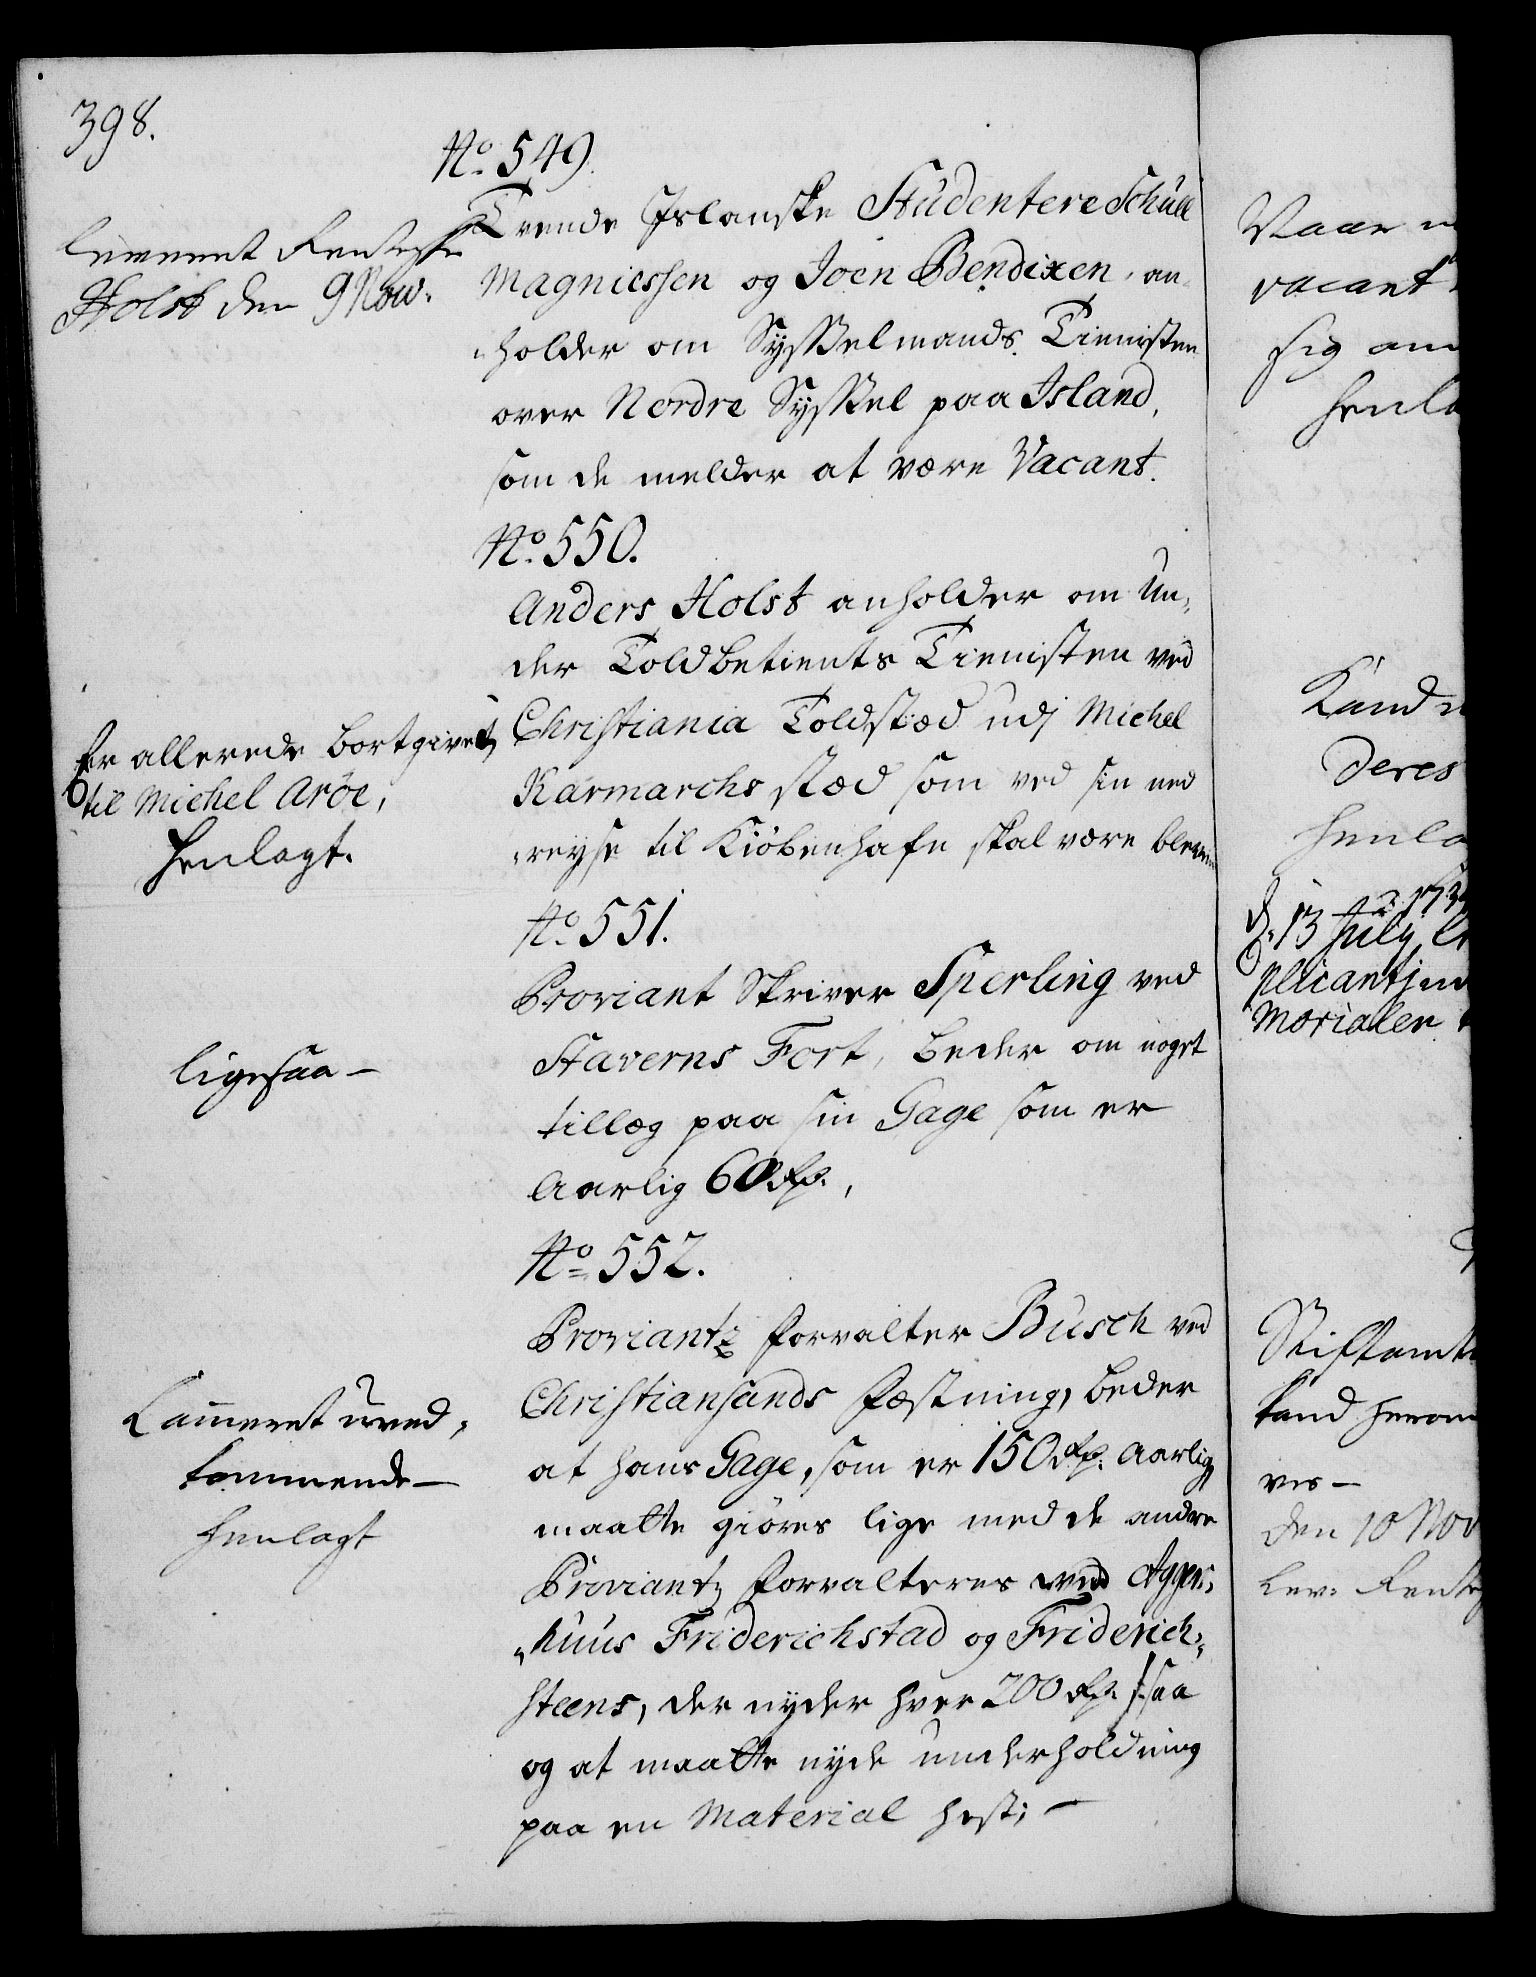 398.
No. 549.
Trende Islanske Studentere Schule
Magniessen og Joen Bendixen, an-
holder om Sysselmands Tienisten
over Nordre Syssel paa Island,
som de melder at være Vacant.
Leveret Rentesk:
Holst den 9 Nov.
No. 550.
Anders Holst anholder om Un-
der Toldbetients Tienisten ved
Christiania Toldstæd udj Michel
Karmarchs stæd som ved sin ned
reyse til Kiøbenhafn skal være bleven
Er allerede bortgivet
til Michel Arøe,
Henlagt.
No. 551.
Proviant Skriver Sperling ved
Staverns Fort, beder om noget
tillæg paa sin Gage som er
Aarlig 60 Rdr.,
ligesaa -
No. 552.
Proviantz Forvalter Busch ved
Christiansands Fæstning, beder
at hans Gage, som er 150 Rdr. Aarlig,
maatte giøres lige med de andre
Proviantz Forvalteres ved Agger-
huus Friderichstad og Friderich-
steens, der nyder hver 200 Rdr. saa
og at maatte nyde underholdning
paa en Material hest; -
Cammeret uved-
kommende -
Henlagt
Vaar
vacant
sig
Kand
deres
d. 13 July
Stiftamt
kand herom
ves -
den 10 Nov
Lev: Rente